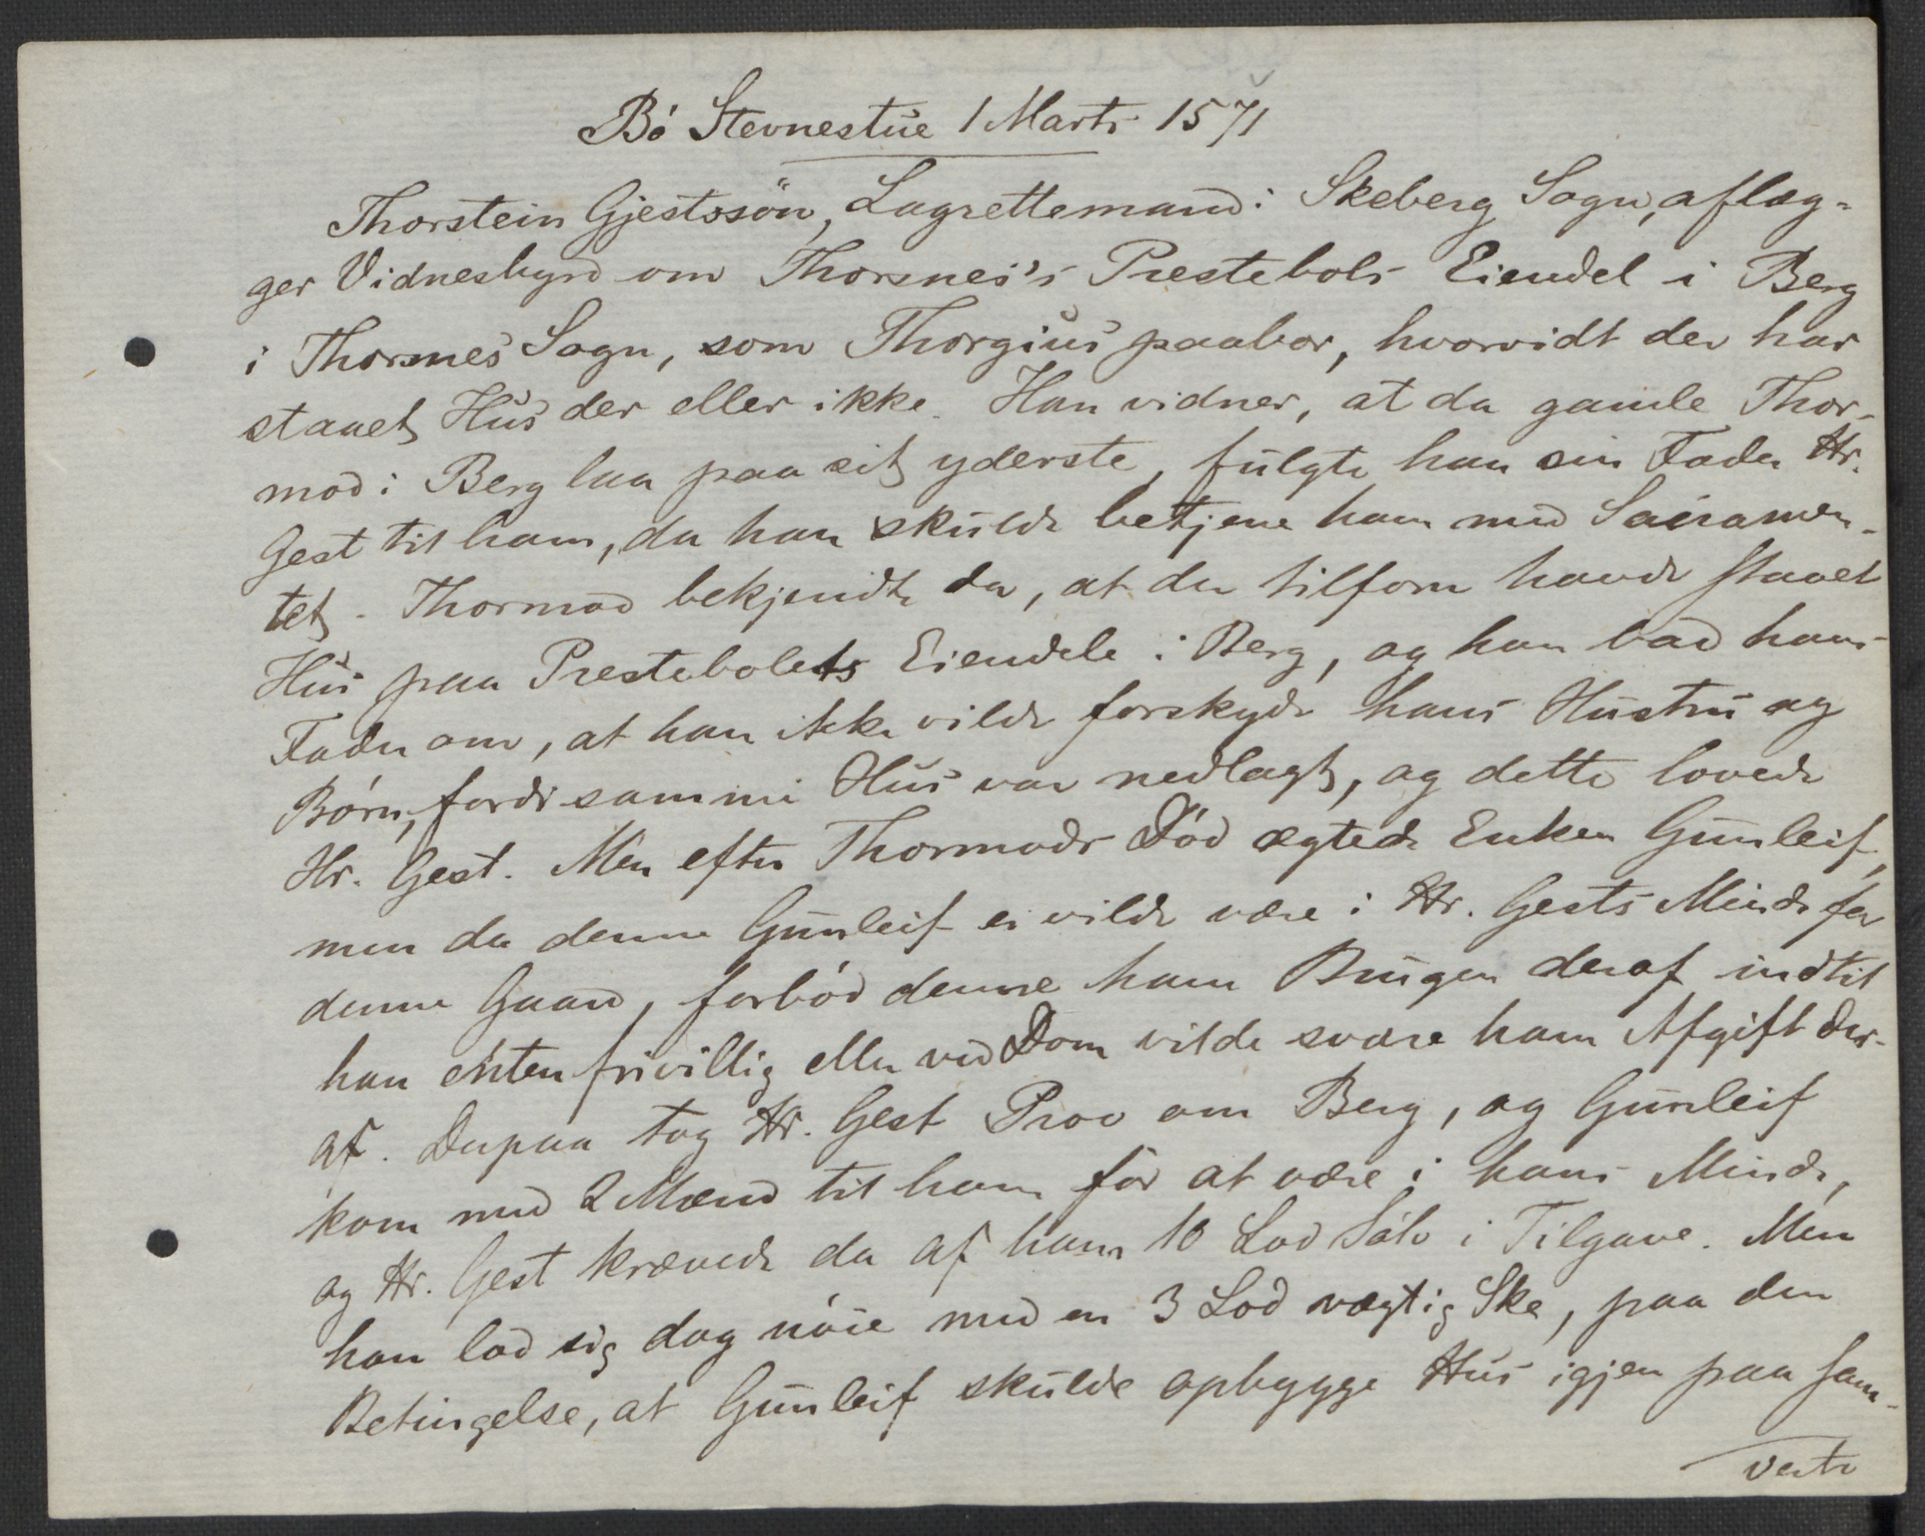 Bó Stevnestue 1 Marts 1571
Thorstein Gjestssön, Lagrettemand i Skeberg Sogn, aflæg-
ger Vidnesbyrd om Thorsnes's Prestebols Eiendel i Berg
i Thorsnes Sogn, som Thorgius paabor, hvorvidt der har
staaet Hus der eller ikke. Han vidner, at da gamle Thor-
mod i Berg laa paa sit yderste, fulgte han sin Fader Hr.
Gest til ham, da han skulde betjene ham med Sacramen-
tet. Thormod bekjendte da, at der tilforn havde staaet
Hus paa Prestebolets Eiendele i Berg, og han bad hans
Fader om, at han ikke vilde forskyde hans Hustru og
Børn, fordi samme Hus var nedlagt, og dette lovede
Hr. Gest. Men efter Thormods Død ægtede Enken Gunleif,
men da denne Gunleif ei vilde være i Hr. Gests Minde for
denne Gaard, forbód denne ham Brugen deraf indtil
han enten frivillig eller ved Dom vilde svare ham Afgift der-
af. Derpaa tog Hr. Gest Prov om Berg, og Gunleif
kom med 2 Mænd til ham for at være i hans Minde,
og Hr. Gest krævede da af ham 10 Lod Sólv i Tilgave. Men
han lod sig dog nóie med en 3 Lod vægtig Ske, paa den
Betingelse, at Gunleif skulde opbygge Hus igjen paa sam-
verte